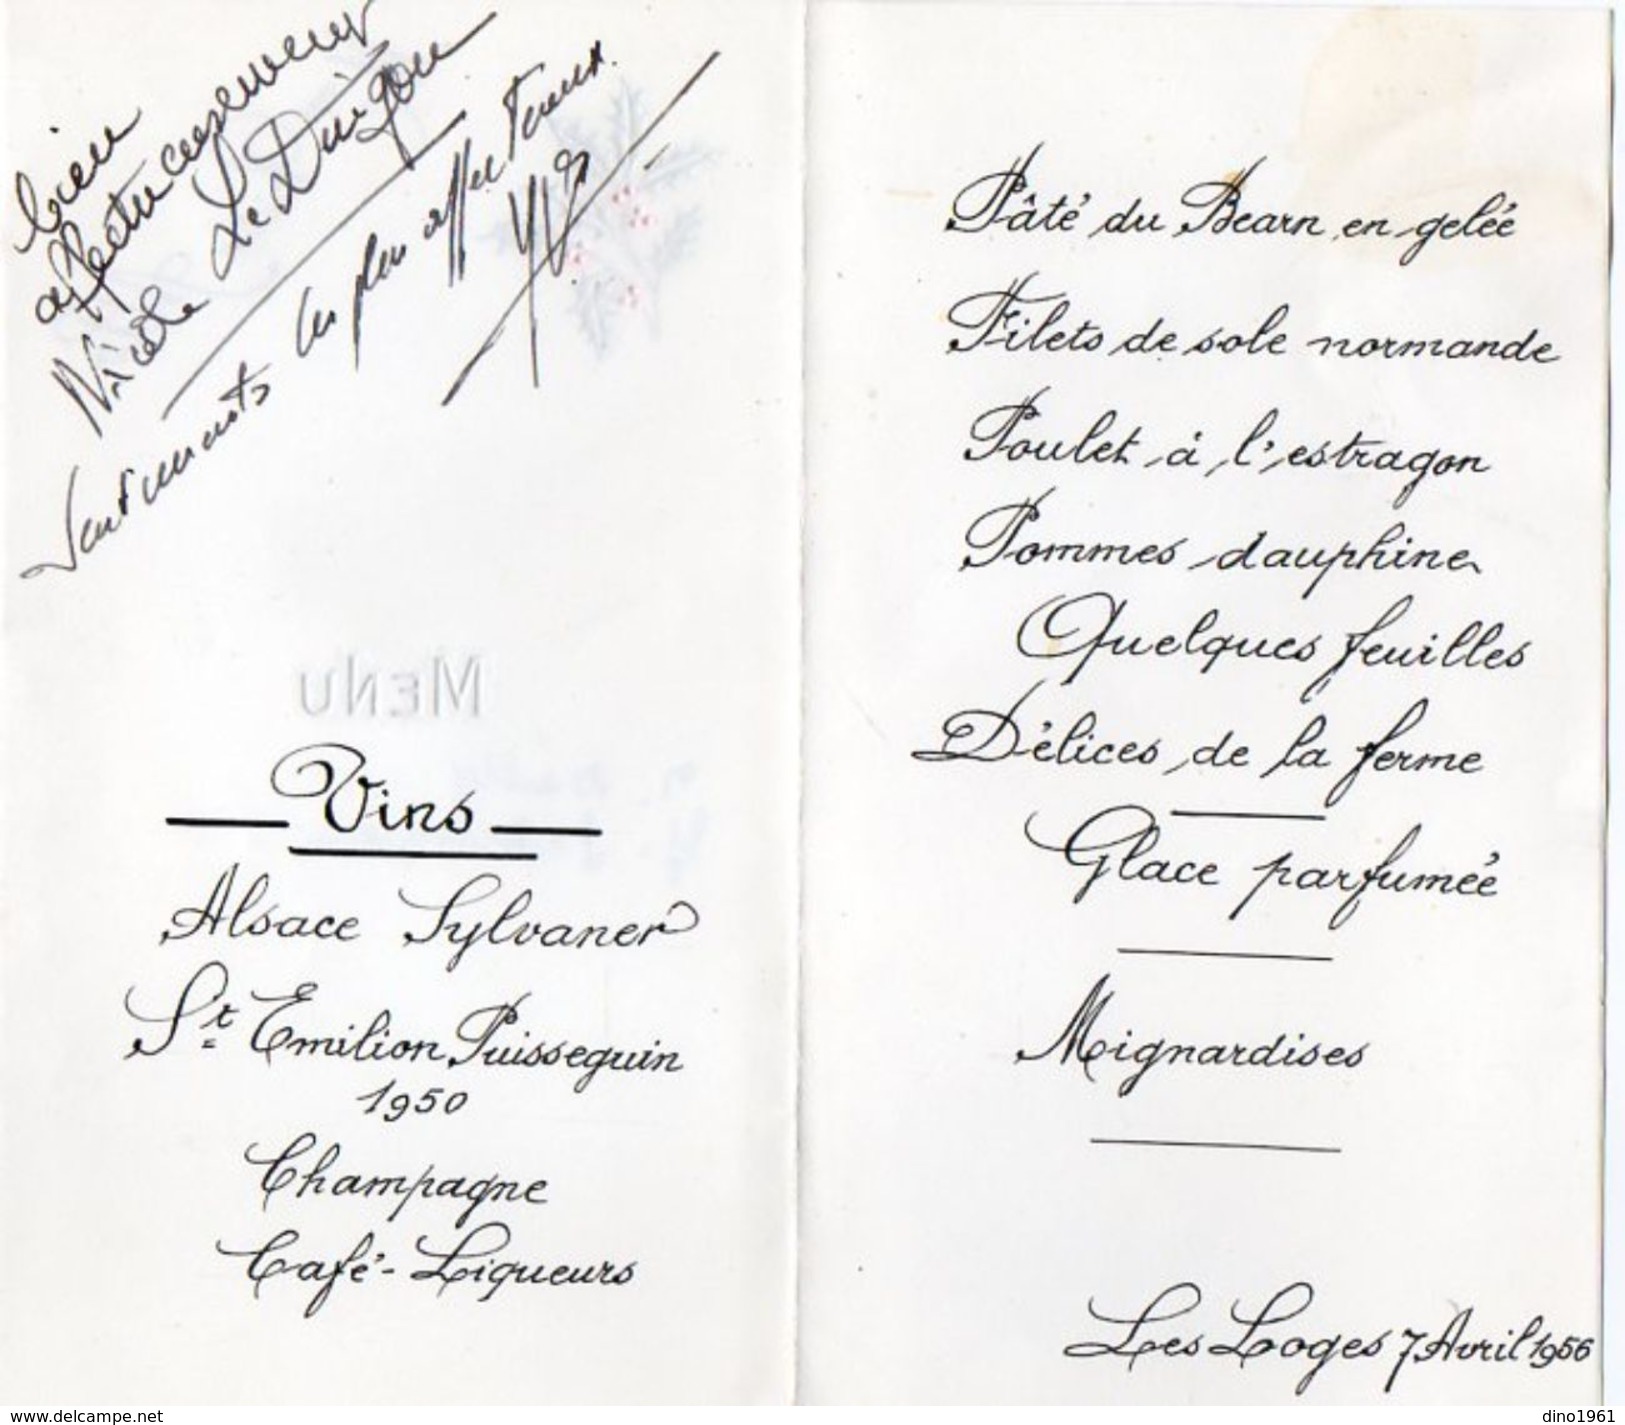 bien
affectueusement
Nicole Le Duigou
Sentiments les plus affectueux.
MENU
Vins
Alsace Sylvaner
St Emilion Puisseguin
1950
Champagne
Café - Liqueurs
Pâté du Bearn en gelée
Filets de sole normande
Poulet à l'estragon
Pommes dauphine
Quelques feuilles
Délices de la ferme
Glace parfumée
Mignardises
Les Loges 7 Avril 1956
www.delcampe.net
dino1961